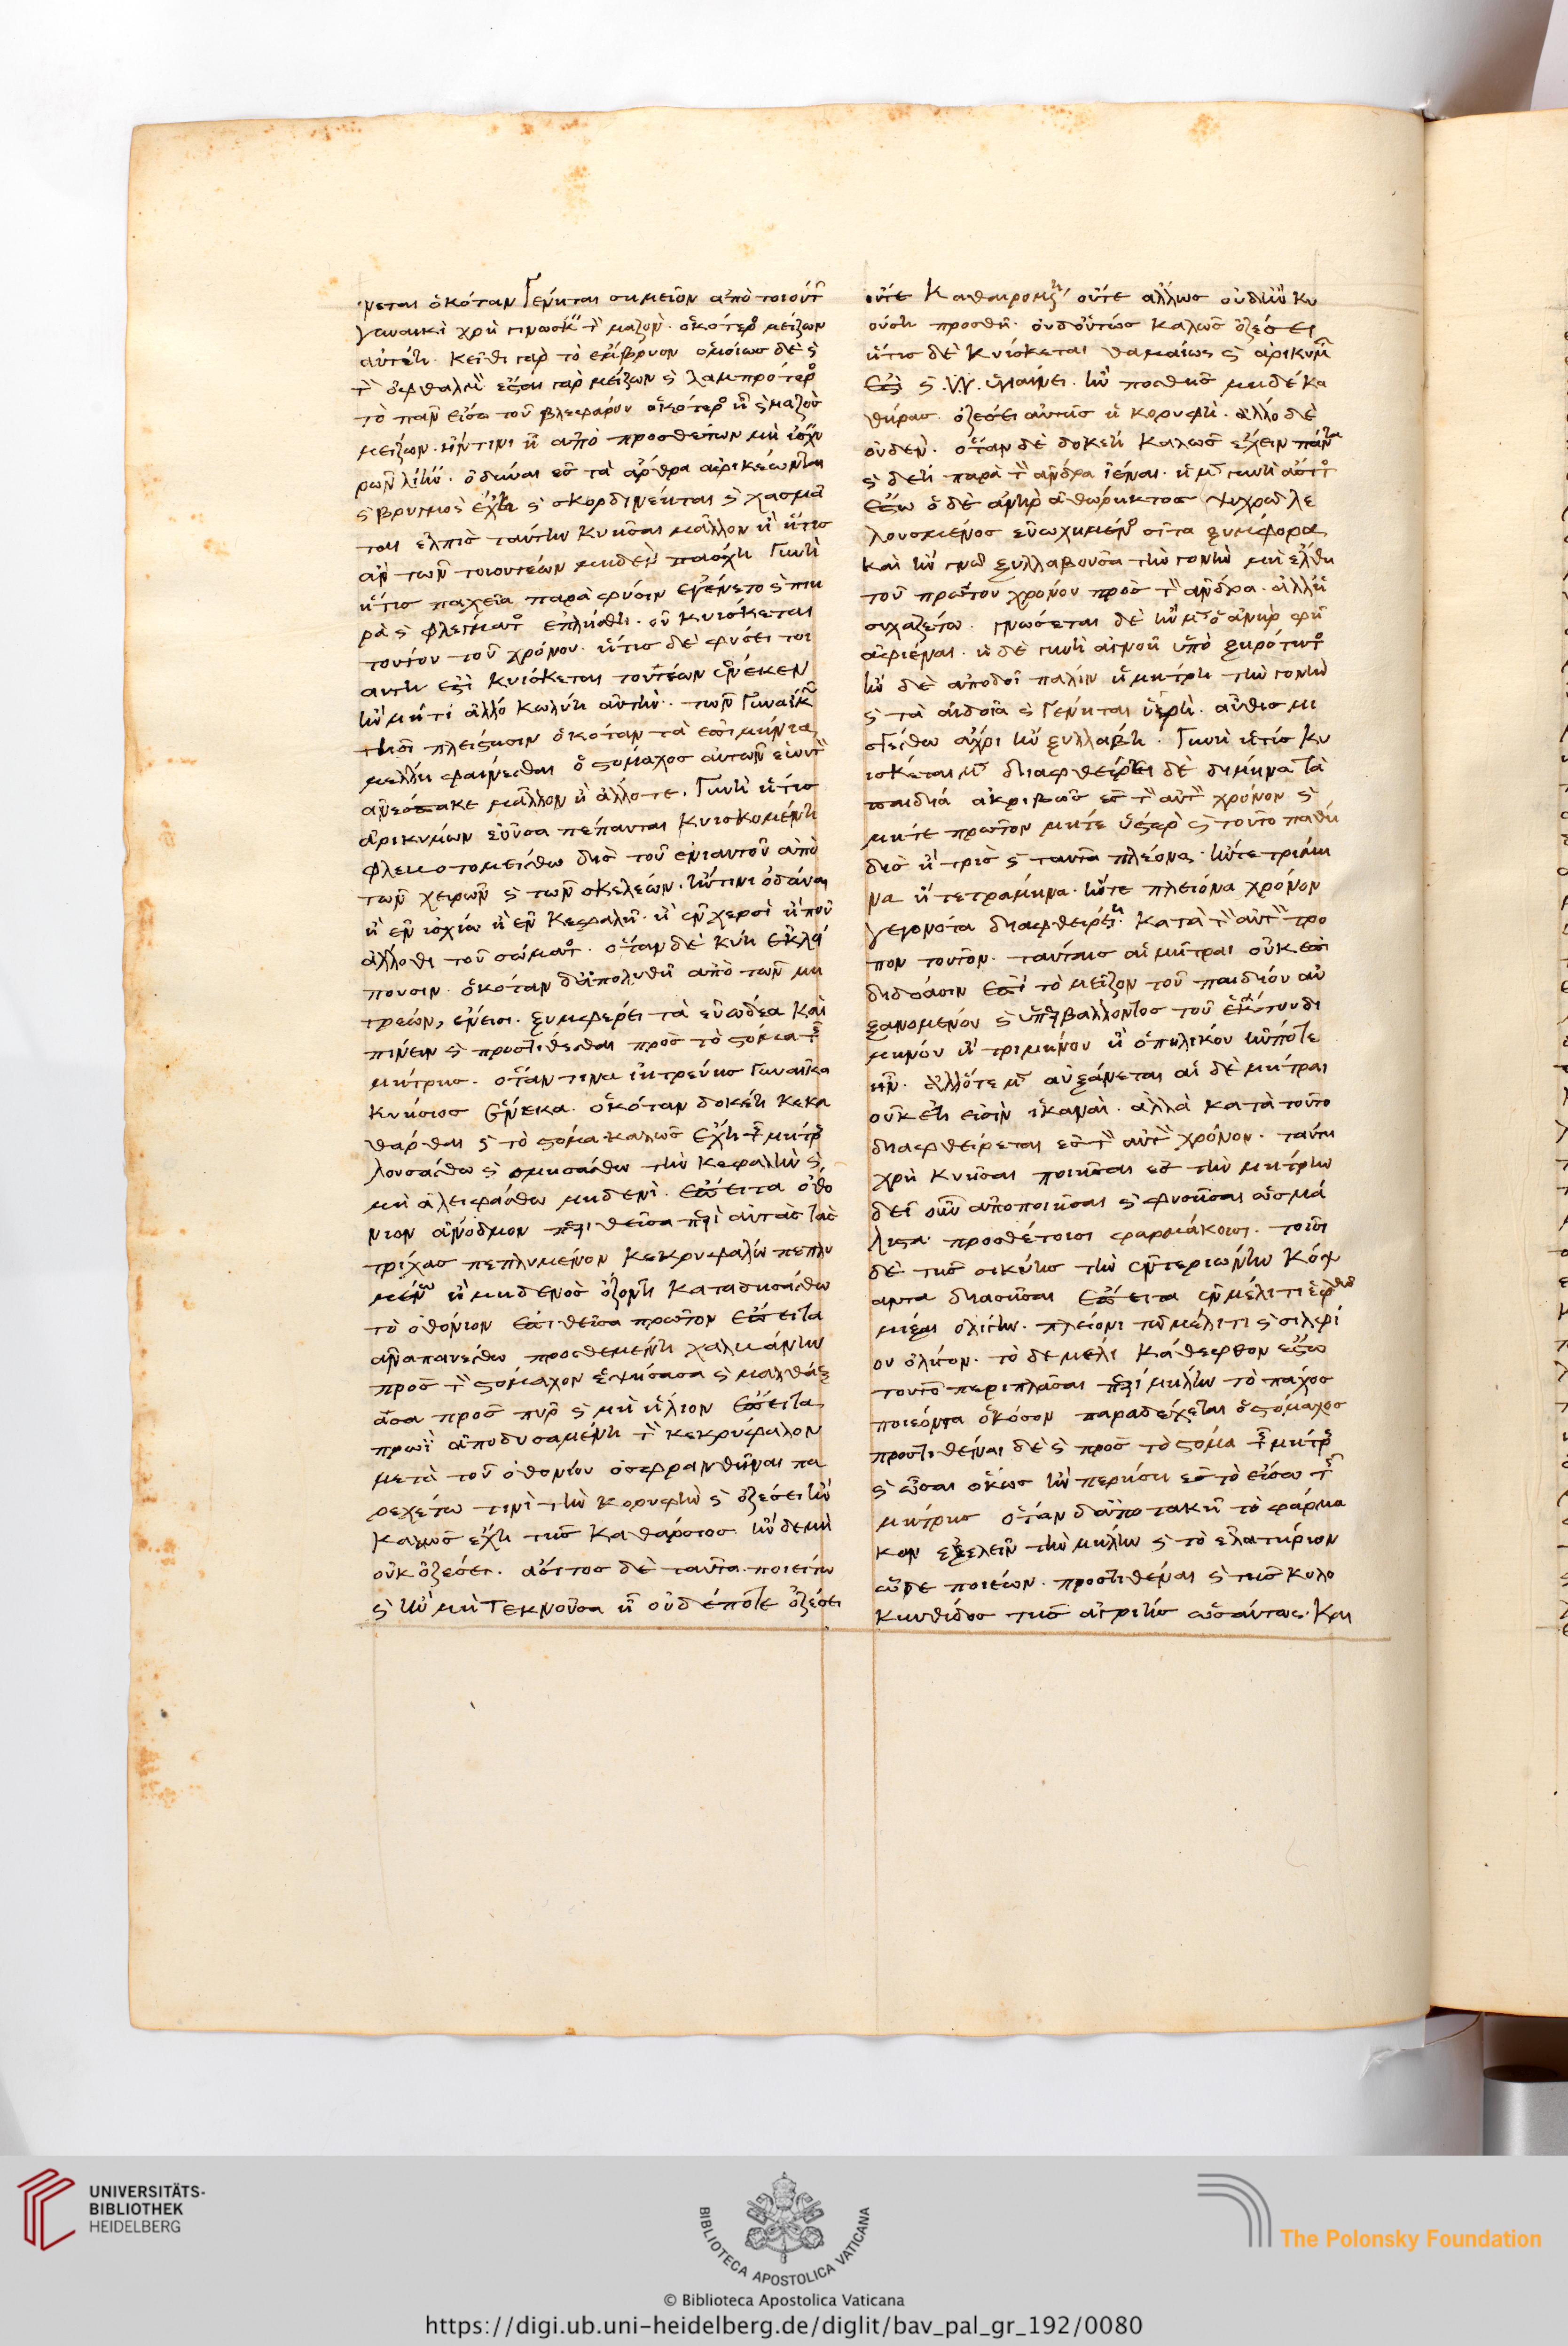 νεται ὁκόταν γένηται σημεῖον ἀπὸ τοιούτ
γυναικὶ χρὴ γινώσκ τ μαζὸν. ὁκότερ μείζων
αὐτέη. κεῖθι γὰρ τὸ ἔμβρυον ὁμοίως δὲ ϛ
τ ὀφθαλμ ἔσται γὰρ μείζων ϛ λαμπρότερ
τὸ πᾶν εἴσω τοῦ βλεφάρου ὁκότερ ἢ ϛ μαζὸς
μείζων. ἥντινι ἢ ἀπὸ προσθέτων μὴ ἰσχυ
ρῶν ὀδύναι ἐς τὰ ἄρθρα ἀφικέωνται
ϛ βρυγμὸς ἔχῃ ϛ σκορδινέηται ϛ χασμᾶ
ται ἐλπὶς ταύτην κυῆσαι μᾶλλον ἢ ἥτις
ἂν τῶν τοιουτέων μηδὲν πάσχῃ γυνὴ
ἥτις παχεῖα παρὰ φύσιν ἐγένετο ϛ πιη
ρὰ ϛ φλέγματ ἐπλήσθη. οὐ κυίσκεται
τουτον τοῦ χρόνου. ἥτις δὲ φύσει τοι
αύτη ἐστὶ κυίσκεται τουτέων εἵνεκεν
ἢν μή τί ἄλλο κωλύῃ αὐτὴν. τῶν γυναικ
τῇσι πλείστῃσιν ὁκόταν τὰ ἐπιμήνια
μέλλῃ φαίνεσθαι ὁ στόμαχος αὐτῶν
μᾶλλον ἢ ἄλλοτε. γυνὴ ἥτις
ἀφικυμων ἐοῦσα πέπαυται κυισκομένη
φλεβοτομείσθω δὶς τοῦ ἐνιαυτοῦ ἀπὸ
τῶν χειρῶν ϛ τῶν σκελέων. ἢν τινι ὀδύναι
ἢ ἐν ἰσχίω ἢ ἐν κεφαλῆ. ἢ ἐν χερσὶ ἢ που
ἄλλοθι τοῦ σώματ. ὅταν δὲ κύῃ ἐκλεί
πουσιν. ὁκόταν δ' ἀπολυθῆ ἀπὸ τῶν μη
τρέων, ἔνεισι. ξυμφέρει τὰ εὐώδεα καὶ
πίνειν ϛ προστίθεσθαι πρὸς τὸ στόμα τ
μήτρης. ὅταν τινα ἰητρεύῃς γυναῖκα
κυήσιος εἵνεκα. ὁκόταν δοκέῃ κεκα
θάρθαι ϛ τὸ στόμα καλῶς ἔχῃ τ μήτρ
λουσάσθω ϛ σμησάσθω τὴν κεφαλὴν ϛ
μὴ ἀλειφάσθω μηδενὶ. ἔπειτα ὀθό
νιον ἄνοδμον περιθεῖσα περὶ αὐτὰς τὰς
τρίχας πεπλυμένον κεκρυφάλω πεπλυ
μένω ἢ μηδενὸς ὄζοντι καταδησάσθω
τὸ ὀθόνιον ἐπιθεῖσα πρῶτον ἔπειτα
ἀναπαυέσθω προσθεμένη χαλβάνην
πρὸς τ στόμαχον ἑψήσασα ϛ μαλθάξ
ασα πρὸς πῦρ ϛ μὴ ἥλιον ἔπειτα
πρωῒ ἀποδυσαμένη τ κεκρύφαλον
μετὰ τοῦ ὀθονίου ὀσφρανθῆναι πα
ρεχέτω τινὶ τὴν κορυφὴν ϛ ὀζέσει ἢν
καλῶς ἔχῃ τῆς καθάρσιος ἢν δὲ μὴ
οὐκ ὀζέσει. ἄσιτος δὲ ταῦτα ποιείτω
ϛ ἢν μὴ τεκνοῦσα ἦ οὐδέποτε ὀζέσει
οὔτε καθαιρομένη οὔτε ἄλλως οὐδ' ἢν κυ
ούσῃ προσθῆ. οὐδ' οὕτως καλῶς ὀζέσει
ἥτις δὲ κυίσκεται θαμαίως ϛ ἀρικύμ
ἐστὶ ϛ ὑγιαίνει. ἢν προσθῆς μηδὲ κα
θήρας. ὀζέσει αὐτῆς ἡ κορυφὴ. ἄλλο δὲ
οὐδὲν. ὅταν δὲ δοκέῃ καλῶς ἔχειν πάντα
ϛ δέῃ παρὰ τ ἄνδρα ἰέναι. ἡ μ γυνὴ ἄσιτ
ἔστω ὁ δὲ ἀνὴρ ἀθώρηκτος ψυχρῶ λε
λουσμένος εὐωχημέν σῖτα ξύμφορα
καὶ ἢν γνῶ ξυλλαβοῦσα τὴν γονὴν μὴ ἔλθῃ
τοῦ πρώτου χρόνου πρὸς τ ἄνδρα. ἀλλ' ἡ
συχαζέτω. γνώσεται δὲ ἢν μ ὁ ἀνὴρ φῆ
ἀφιέναι. ἡ δὲ γυνὴ ἀγνοῆ ὑπὸ ξηρότητ
ἢν δὲ ἀποδοῖ πάλιν ἡ μήτρη τὴν γονὴν
ϛ τὰ αἰδοῖα ϛ γένηται ὑγρὴ. αὖθις μι
σγέσθω ἄχρι ἢν ξυλλάβῃ. γυνὴ ἥτις κυ
ίσκεται μ διαφθείρει δὲ δίμηνα τὰ
παιδία ἀκριβῶς ἐς τ αὐτ χρόνον ϛ
μήτε πρῶτον μήτε ὕστερ ϛ τοῦτο παθῇ
δὶς ἢ τρὶς ϛ ταῦτα πλέονα. ἤν τε τρίμη
να ἢ τετράμηνα. ἤν τε πλείονα χρόνον
γεγονότα διαφθείρῃ. κατὰ τ αὐτ τρό
πον τοῦτον. ταύτης αἱ μῆτραι οὐκ ἐπι
διδόασιν ἐπὶ τὸ μεῖζον τοῦ παιδίου αὐ
ξανομένου ϛ ὑπερβάλλοντος τοῦ ἐκ τοῦ δι
μήνου ἢ τριμήνου ἢ ὁπηλίκου
ἦν. ἀλλ' ὅτε μ αὐξάνεται αἱ δὲ μῆτραι
οὐκέτι εἰσὶν ἱκαναὶ. ἀλλὰ κατὰ τοῦτο
διαφθείρεται ἐς τ αὐτ χρόνον. ταύτη
χρὴ κυῆσαι ποιῆσαι ἐς τὴν μήτρην
δεῖ οὖν ἀποποιῆσαι ϛ φυσῆσαι ὡς μά
λιστα προσθέτοισι φαρμάκοισι. τοῖσι
δὲ τῆς σικύης τὴν ἐντεριώνην κόψ
αντα διασῆσαι ἔπειτα ἐν μέλιτι ἑφθῶ
μίξαι ὀλίγην. πλείονι τῶ μέλιτι ϛ σιλφί
ου ὀλίγον. τὸ δὲ μέλι κάθεφθον ἔστω
τοῦτο περιπλάσαι περὶ μήλην τὸ πάχος
ποιέοντα ὁκόσον παραδέχεται ὁ στόμαχος
προστιθέναι δὲ ϛ πρὸς τὸ στόμα τ μήτρ
ϛ ὦσαι ὅκως ἢν περήσῃ ἐς τὸ εἴσω τ
μήτρης ὅταν δ' ἀποτακῆ τὸ φάρμα
κον ἐξελεῖν τὴν μήλην ϛ τὸ ἐλατήριον
ὧδε ποιέων. προστιθέναι ϛ τῆς κολο
κυνθίδος τῆς ἀγρίης ὡσαύτως. καὶ
UNIVERSITÄTS-
BIBLIOTHEK
HEIDELBERG
BIBLIOTECA APOSTOLICA VATICANA
The Polonsky Foundation
© Biblioteca Apostolica Vaticana
https://digi.ub.uni-heidelberg.de/diglit/bav_pal_gr_192/0080